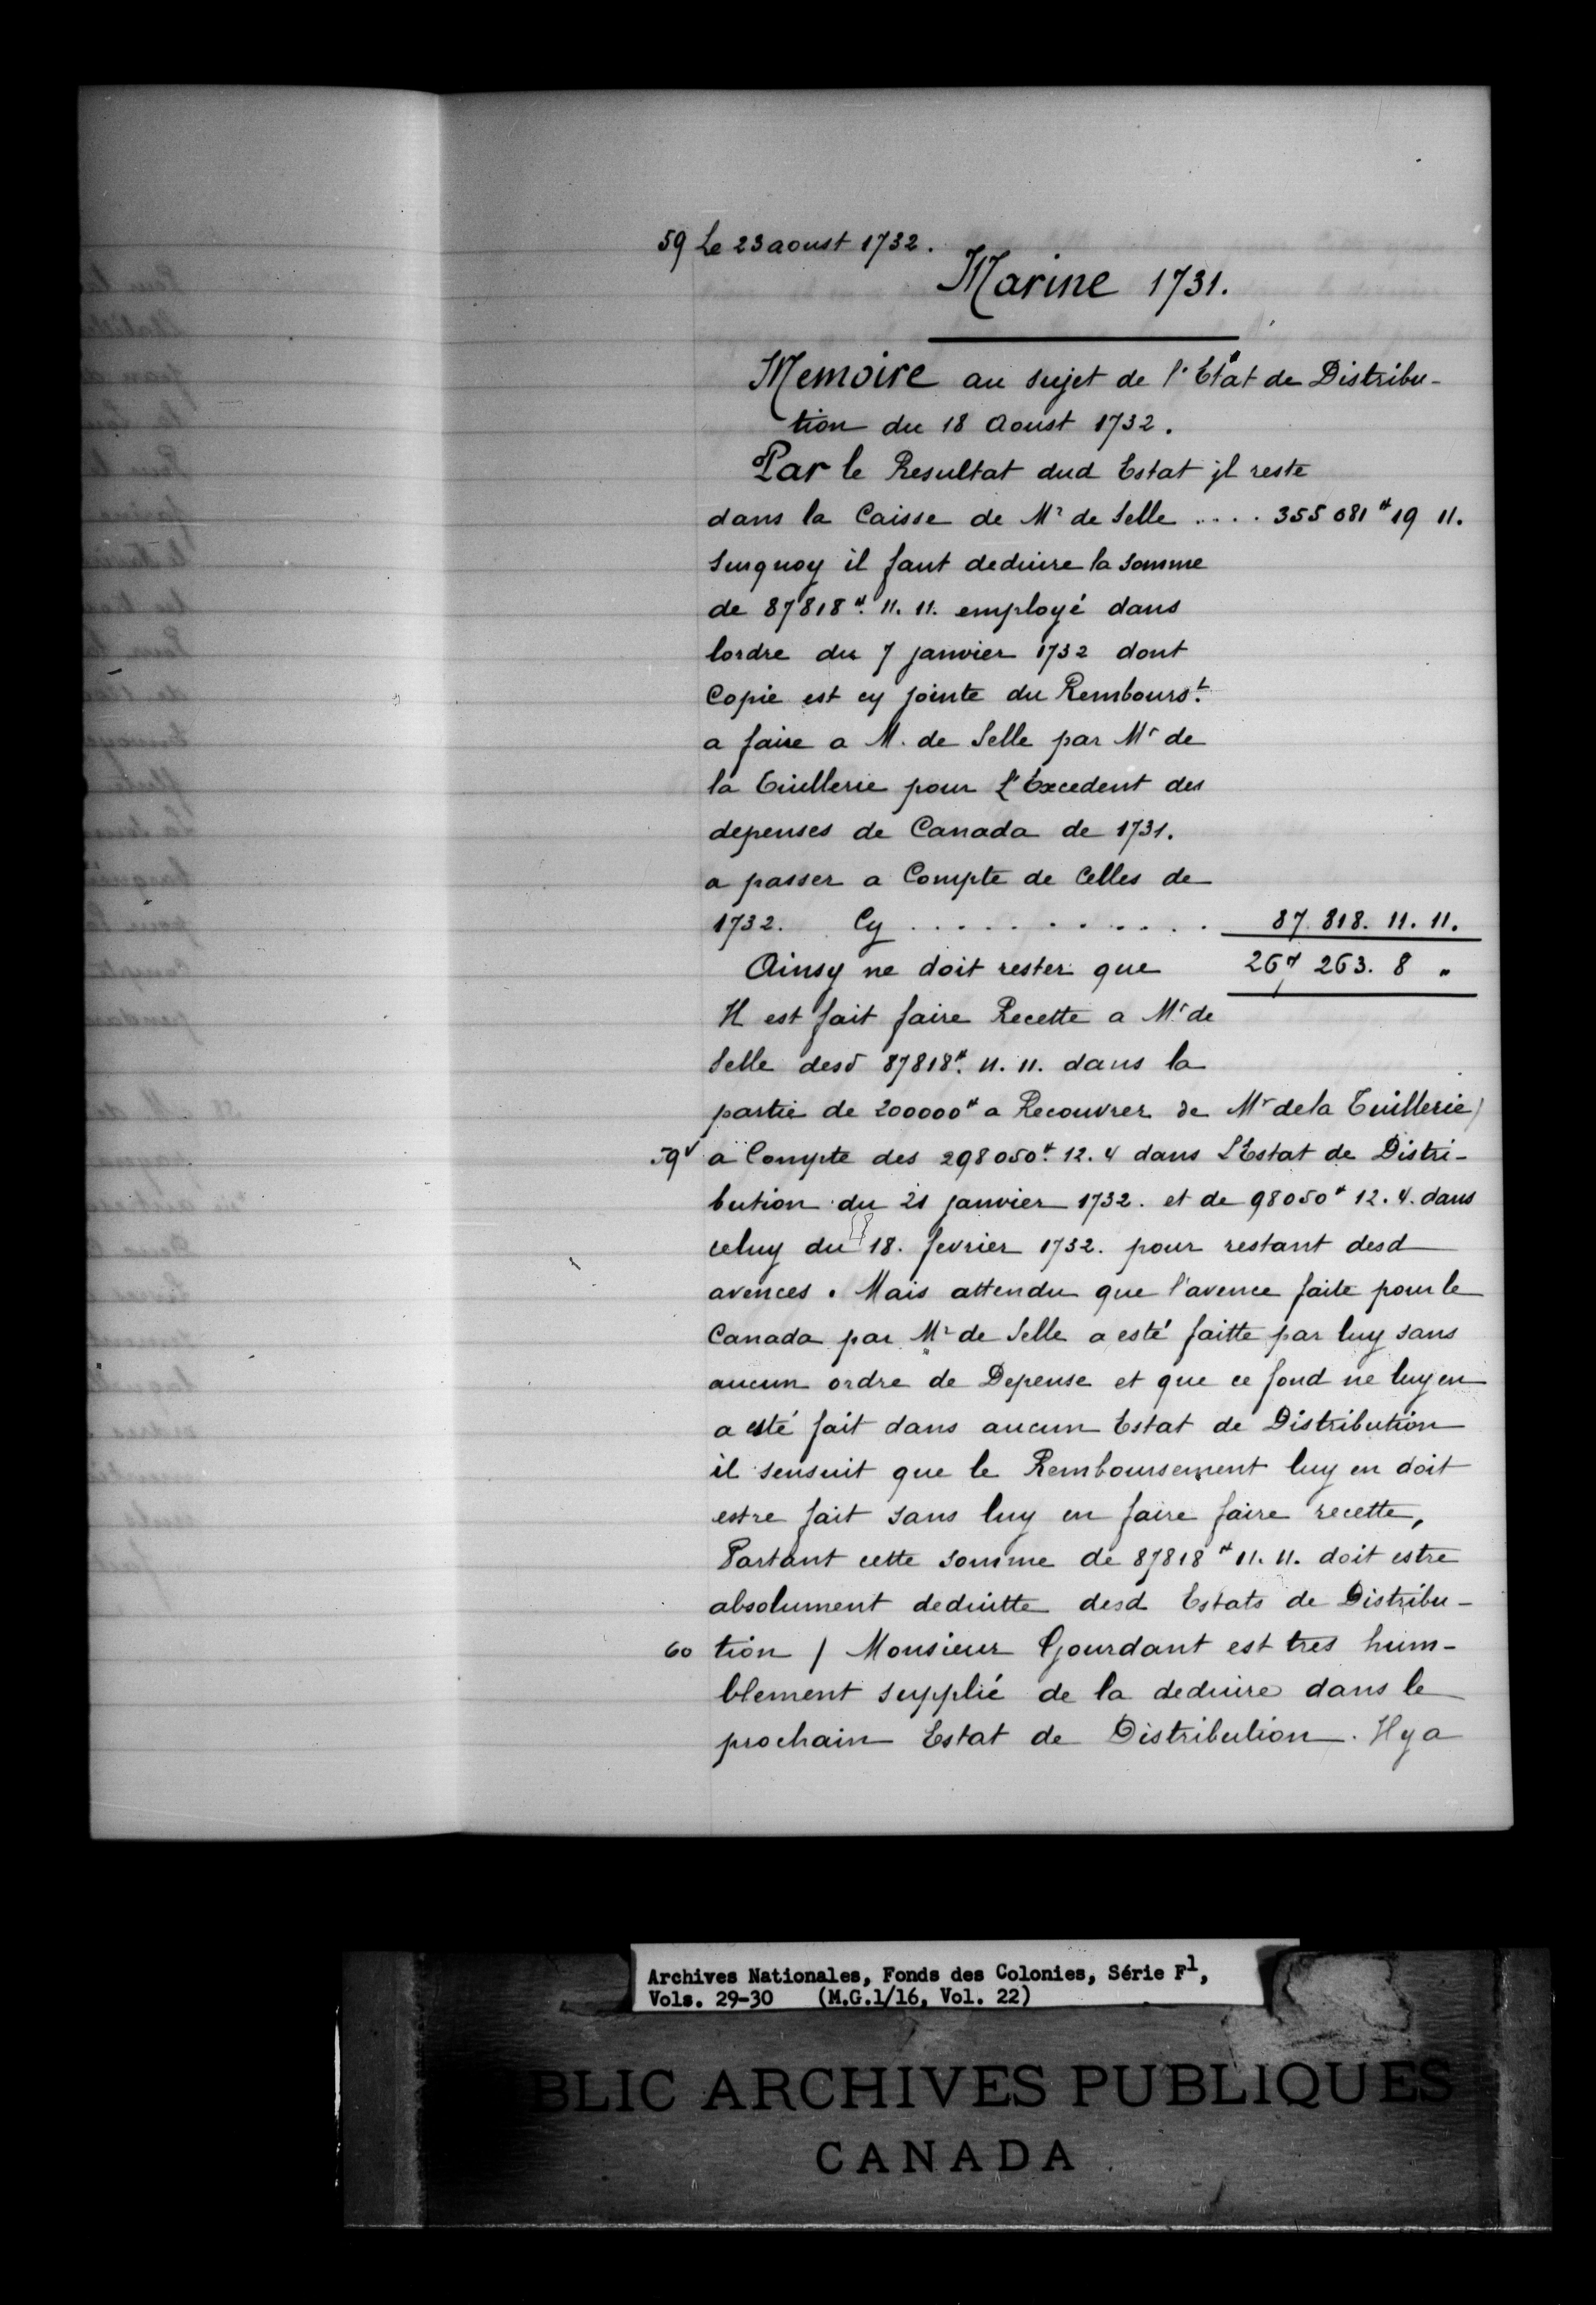 59 Le 23 aoust 1732.
Marine 1731.
Memoire au sujet de l'Etat de Distribu-
tion du 18 Aoust 1732.
Par le Resultat dud Estat jl reste
dans la Caisse de Mr de Selle .... 355 081# 19 11.
Surquoy il faut deduire la somme
de 87818#. 11. 11. employé dans
lordre du 7 janvier 1732 dont
Copie est cy jointe du Rembourst.
a faire a M. de Selle par Mr de
la Tuillerie pour L'Excedent des
depenses de Canada de 1731.
a passer a Compte de Celles de
1732. Cy ............ 87 818. 11. 11.
Ainsy ne doit rester que 267 263. 8 "
Il est fait faire Recette a Mr de
Selle desd 87818#. 11. 11. dans la
partie de 200000# a Recouvrer de Mr de la Tuillerie /
59v a Compte des 298050#. 12. 4 dans L'Estat de Distri-
bution du 21 janvier 1732. et de 98050# 12. 4. dans
celuy du 18. fevrier 1732. pour restant desd
avences. Mais attendu que l'avence faite pour le
Canada par Mr de Selle a esté faitte par luy sans
aucun ordre de Depense et que ce fond ne luy en
a esté fait dans aucun Estat de Distribution
il sensuit que le Remboursement luy en doit
estre fait sans luy en faire faire recette,
Partant cette somme de 87818# 11. 11. doit estre
absolument deduitte desd Estats de Distribu-
60 tion / Monsieur Gourdant est tres hum-
blement supplié de la deduire dans le
prochain Estat de Distribution. Il y a
Archives Nationales, Fonds des Colonies, Série F1,
Vols. 29-30 (M.G.1/16, Vol. 22)
BLIC ARCHIVES PUBLIQUES
CANADA